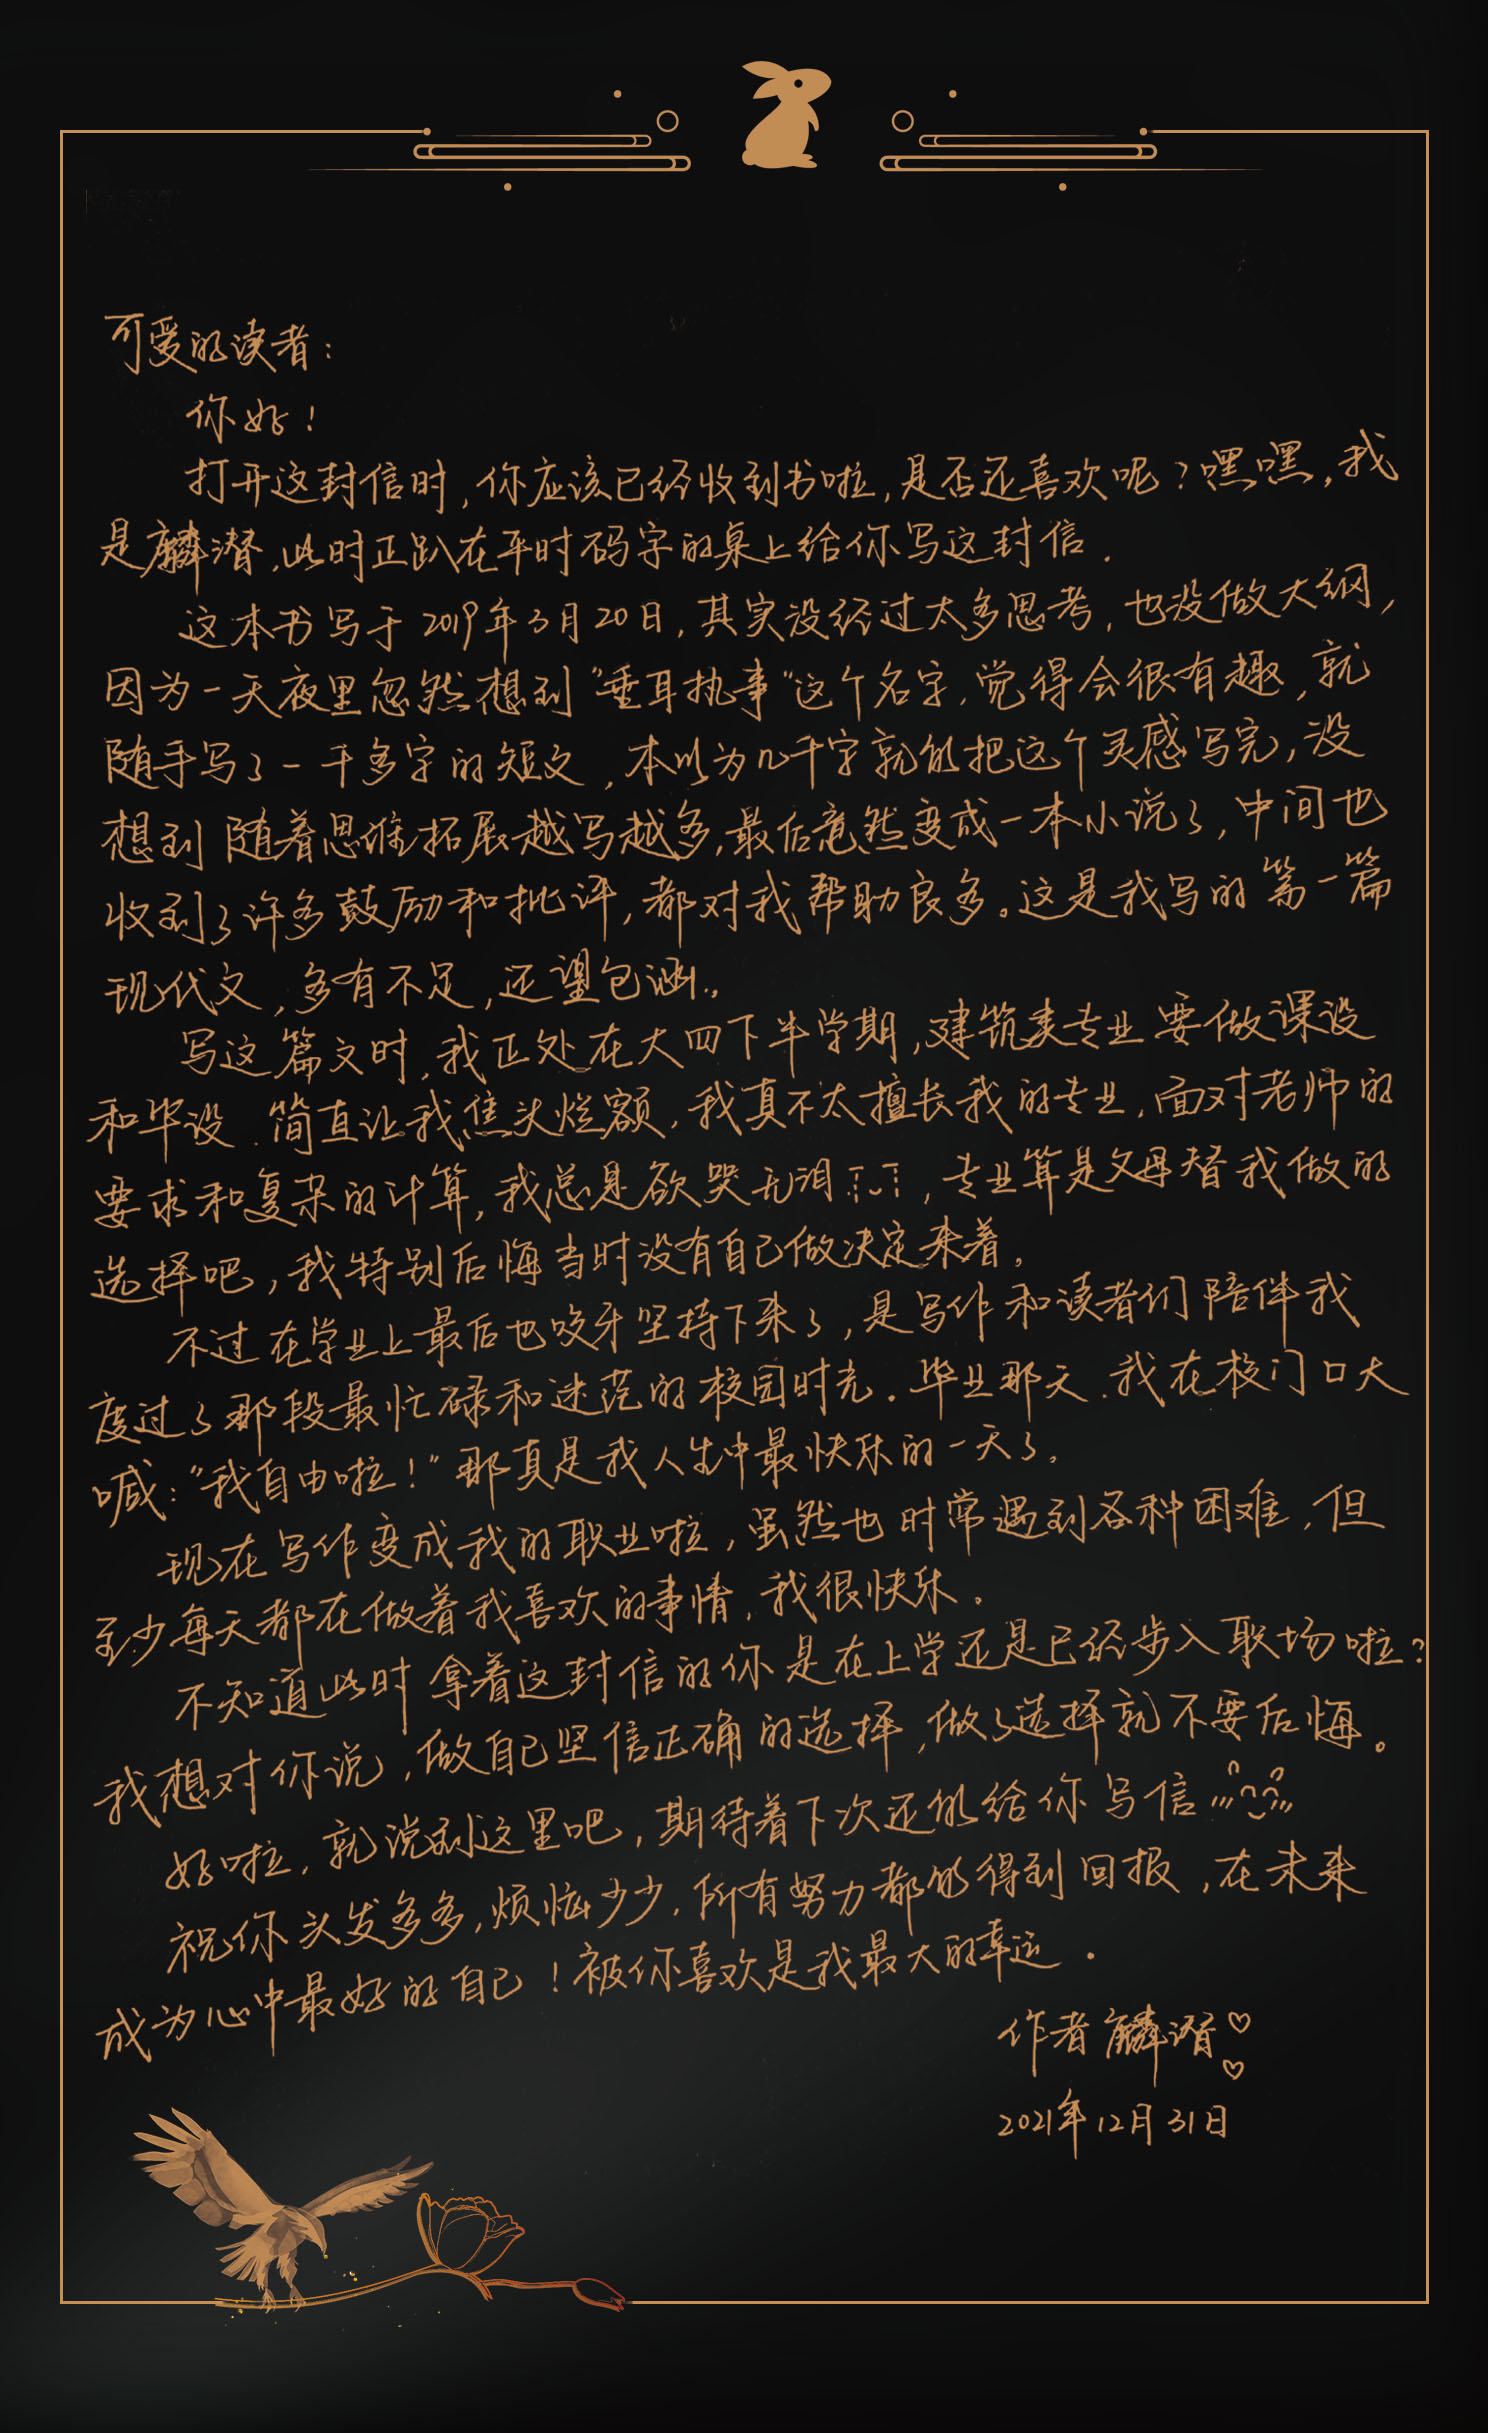 可爱的读者：
你好！
打开这封信时，你应该已经收到书啦，是否还喜欢呢？嘿嘿，我
是麟潜，此时正趴在平时码字的桌上给你写这封信．
这本书写于2019年3月20日，其实没经过太多思考，也没做大纲，
因为一天夜里忽然想到“垂耳执事”这个名字，觉得会很有趣，就
随手写了一千多字的短文，本以为几千字就能把这个灵感写完，没
想到随着思维拓展越写越多，最后竟然变成一本小说了，中间也
收到了许多鼓励和批评，都对我帮助良多。这是我写的第一篇
现代文，多有不足，还望包涵。
写这篇文时，我正处在大四下半学期，建筑类专业要做课设
和毕设．简直让我焦头烂额，我真不太擅长我的专业，面对老师的
要求和复杂的计算，我总是欲哭无泪，专业算是父母替我做的
选择吧，我特别后悔当时没有自己做决定来着。
不过在学业上最后也咬牙坚持下来了，是写作和读者们陪伴我
度过了那段最忙碌和迷茫的校园时光．毕业那天．我在校门口大
喊：“我自由啦！”那真是我人生中最快乐的一天了。
现在写作变成我的职业啦，虽然也时常遇到各种困难，但
至少每天都在做着我喜欢的事情，我很快乐．
不知道此时拿着这封信的你是在上学还是已经步入职场啦？
我想对你说，做自己坚信正确的选择，做了选择就不要后悔。
好啦，就说到这里吧，期待着下次还能给你写信
祝你头发多多，烦恼少少，所有努力都能得到回报，在未来
成为心中最好的自己！被你喜欢是我最大的幸运．
作者 麟潜♡♡
2021年12月31日